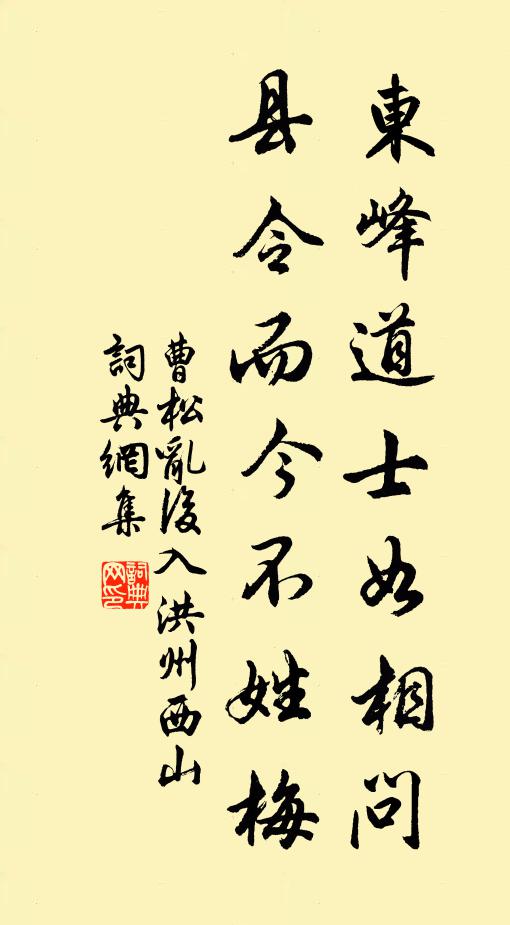 東峰道士如相問
县令而今不姓梅
曹松亂後入洪州西山
詞典網集
詞典网印